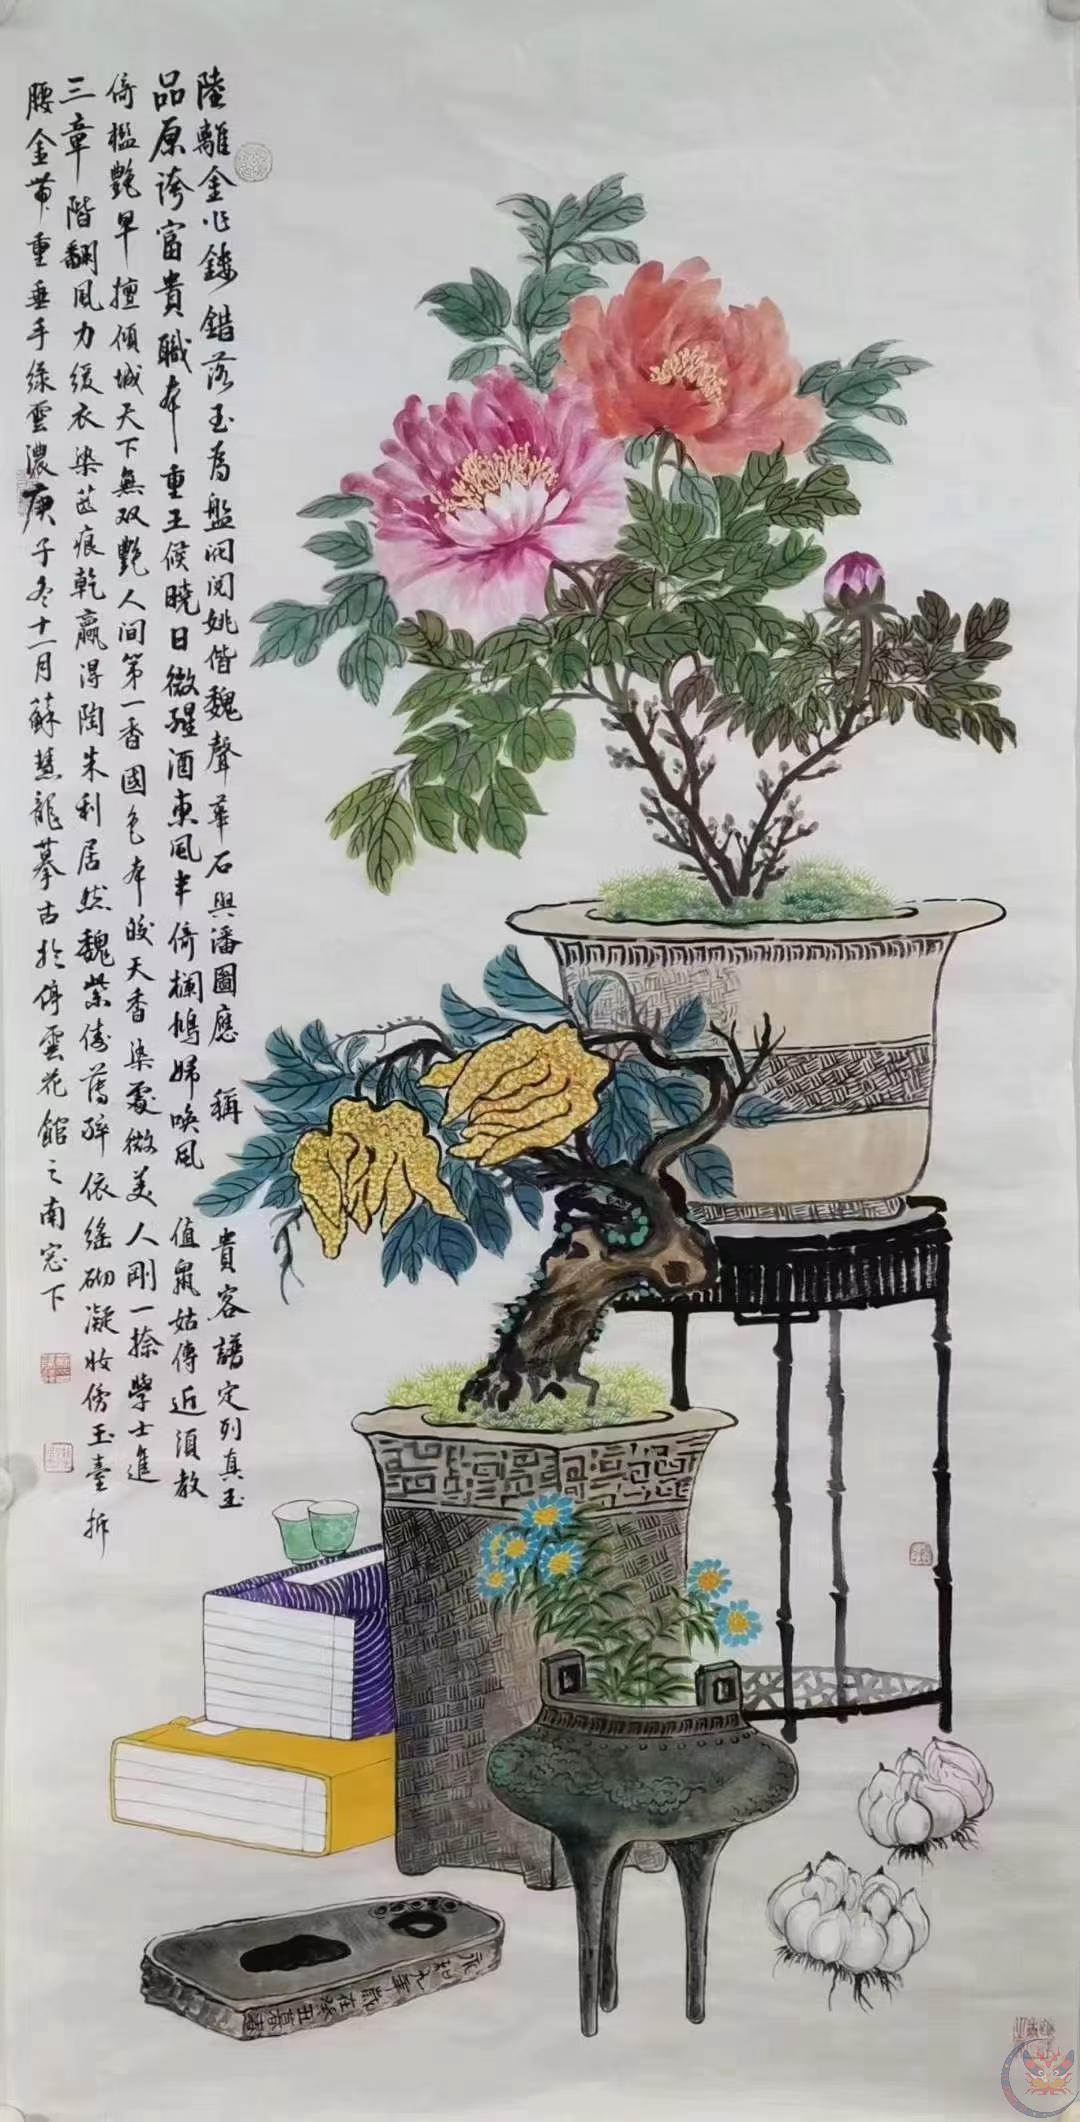 陸離金作鏤錯落玉為盤洞閱姚偕魏聲華石與潘圖應稱貴客譜定列真玉
品原誇富貴職本重王候曉日微醒酒東風半倚欄鳩婦喚風值鼠姑傳近須教
倚檻艷早擅傾城天下無双艷人間第一香國色本晈天香染處微美人剛一捻學士進
三章階翻風力緩衣染茜痕乾贏得陶朱利居然魏紫傳舊醉依瑤砌凝妝傍玉臺折
腰金带重垂手綠雲濃庚子冬十一月蘇慧龍摹古於停雲花館之南窓下
永和九年歲在癸丑暮春